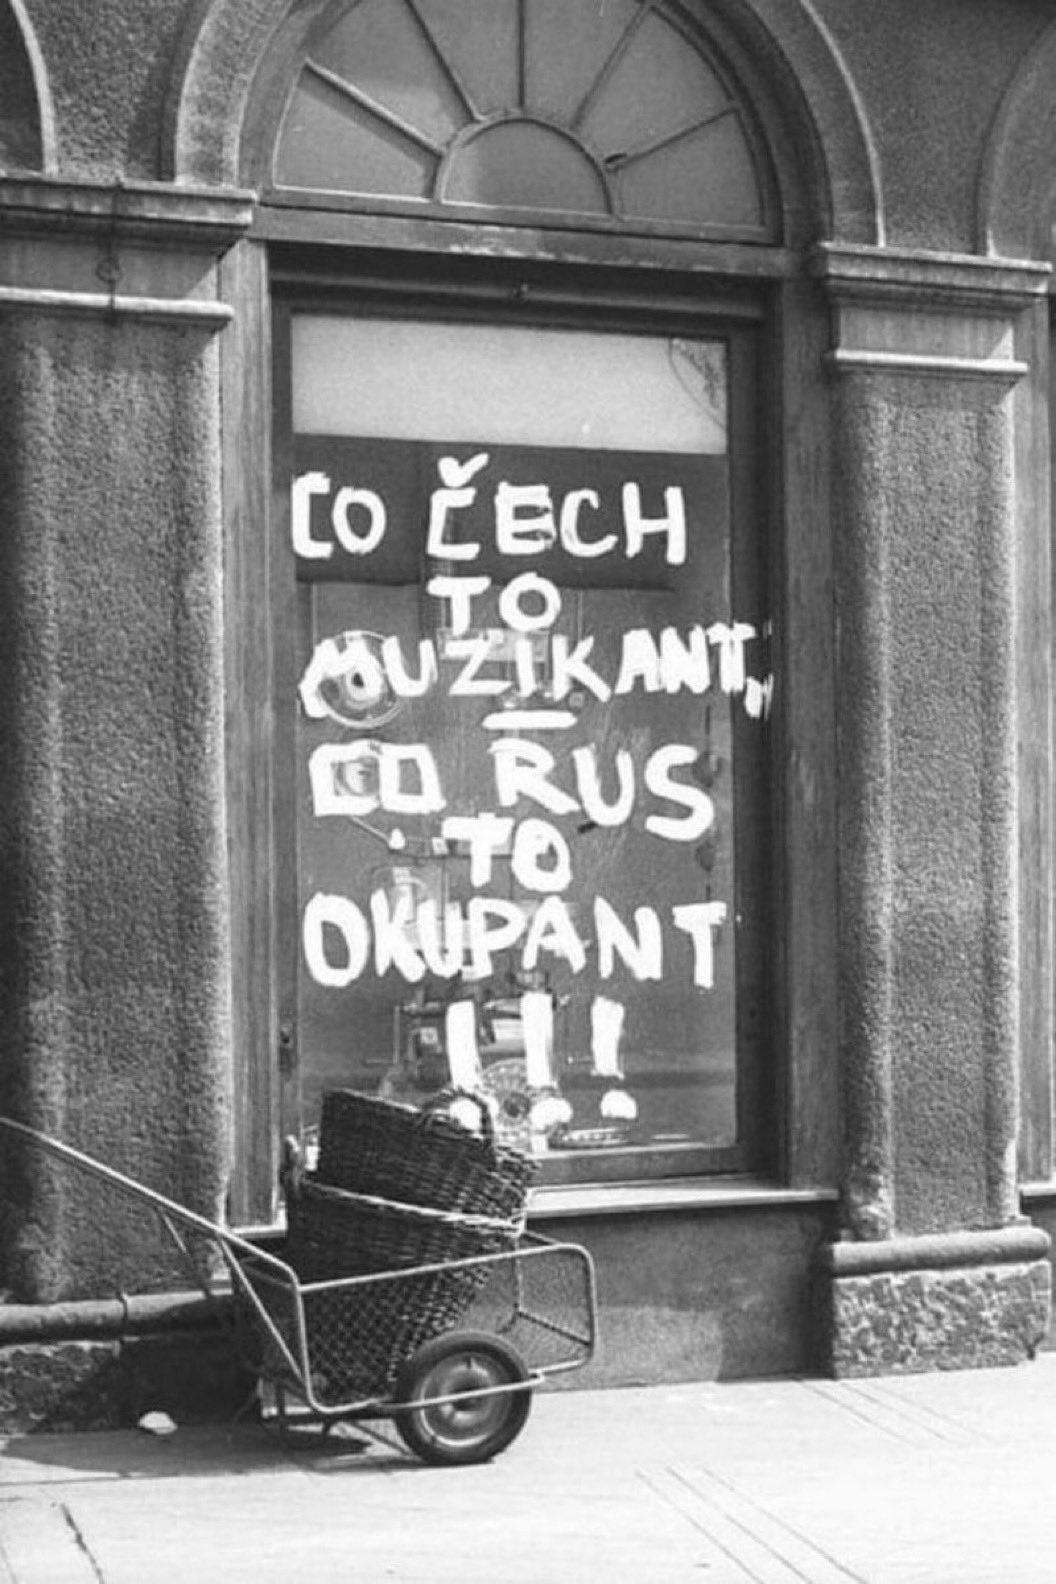 CO ČECH
TO
MUZIKANT,
–
CO RUS
TO
OKUPANT
!!!